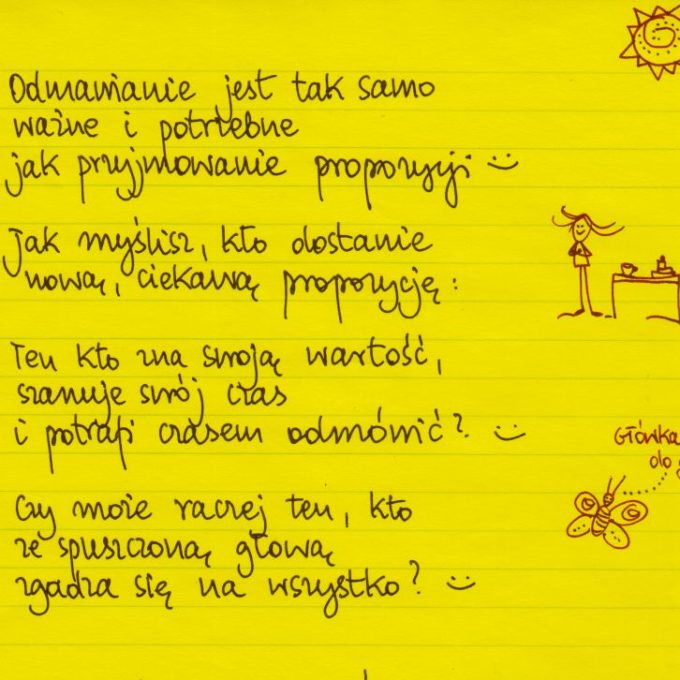 Odmawianie jest tak samo
ważne i potrzebne
jak przyjmowanie propozycji :)
Jak myślisz, kto dostanie
nową, ciekawą propozycję:
Ten kto zna swoją wartość,
szanuje swój czas
i potrafi czasem odmówić? :)
Główka
do g
Czy może raczej ten, kto
ze spuszczoną głową
zgadza się na wszystko? :)